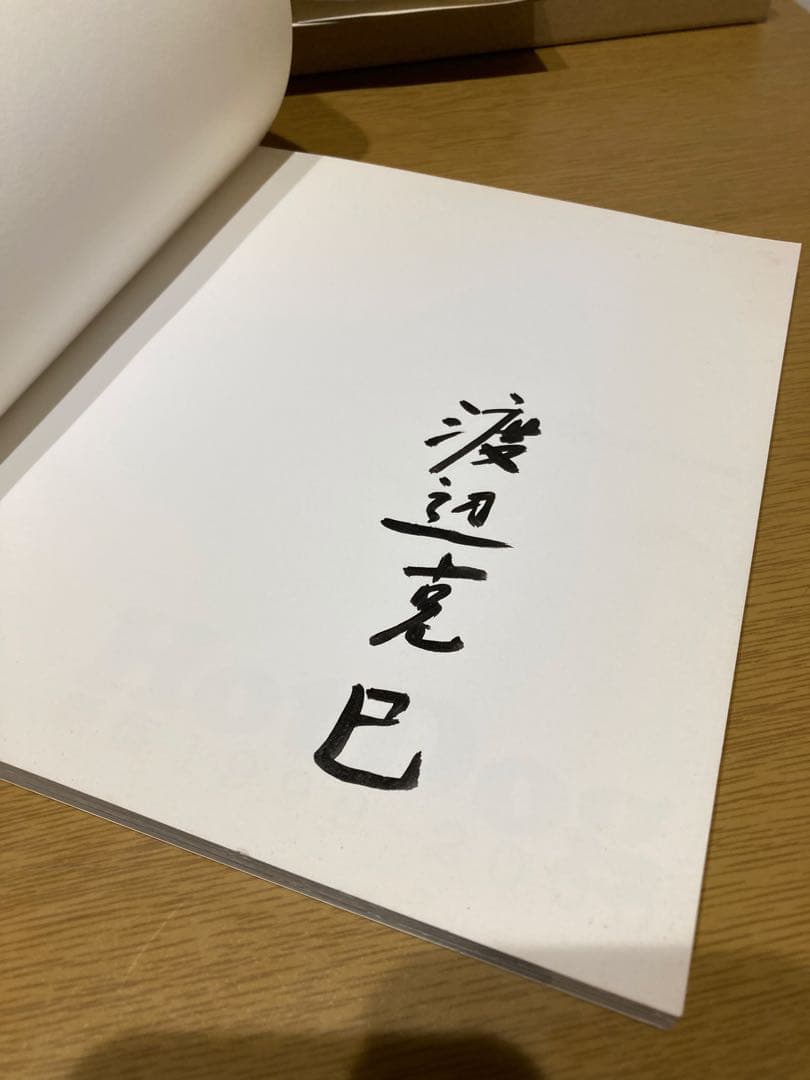 渡辺克巳